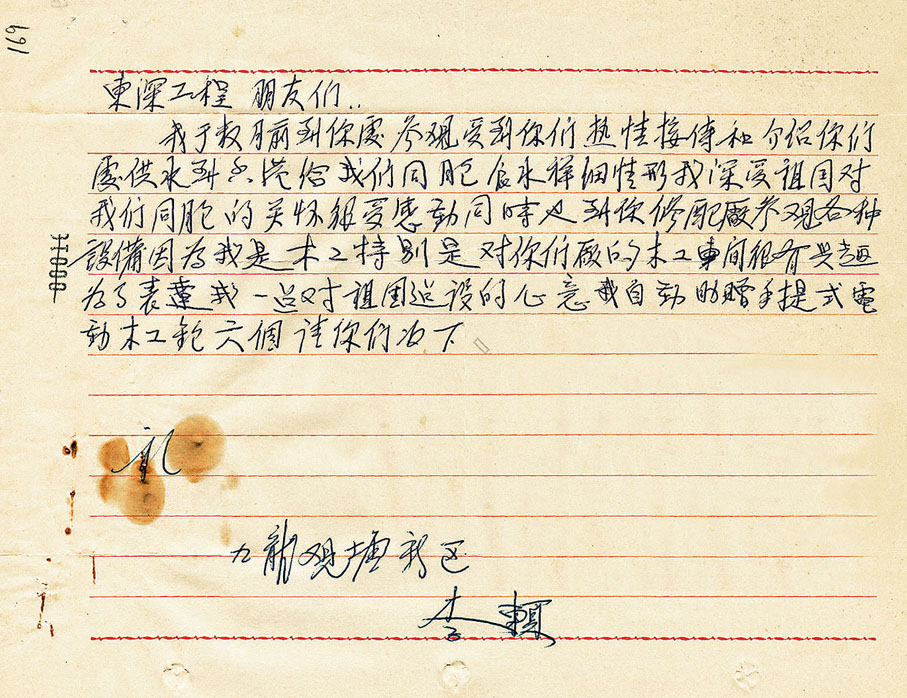 169
東深工程 朋友们..
我于数月前到你處参观受到你们热情接待和介绍你们
處供水到香港给我们同胞食水祥细情形我深受祖国对
我们同胞的关怀很受感動同時也到你修配廠参观各种
設備因为我是木工特别是对你们廠的木工車间很有兴趣
为了表達我一点对祖国建设的心意我自动助赠手提式電
動木工鉋六個请你们收下
礼
九龍观塘新区
李